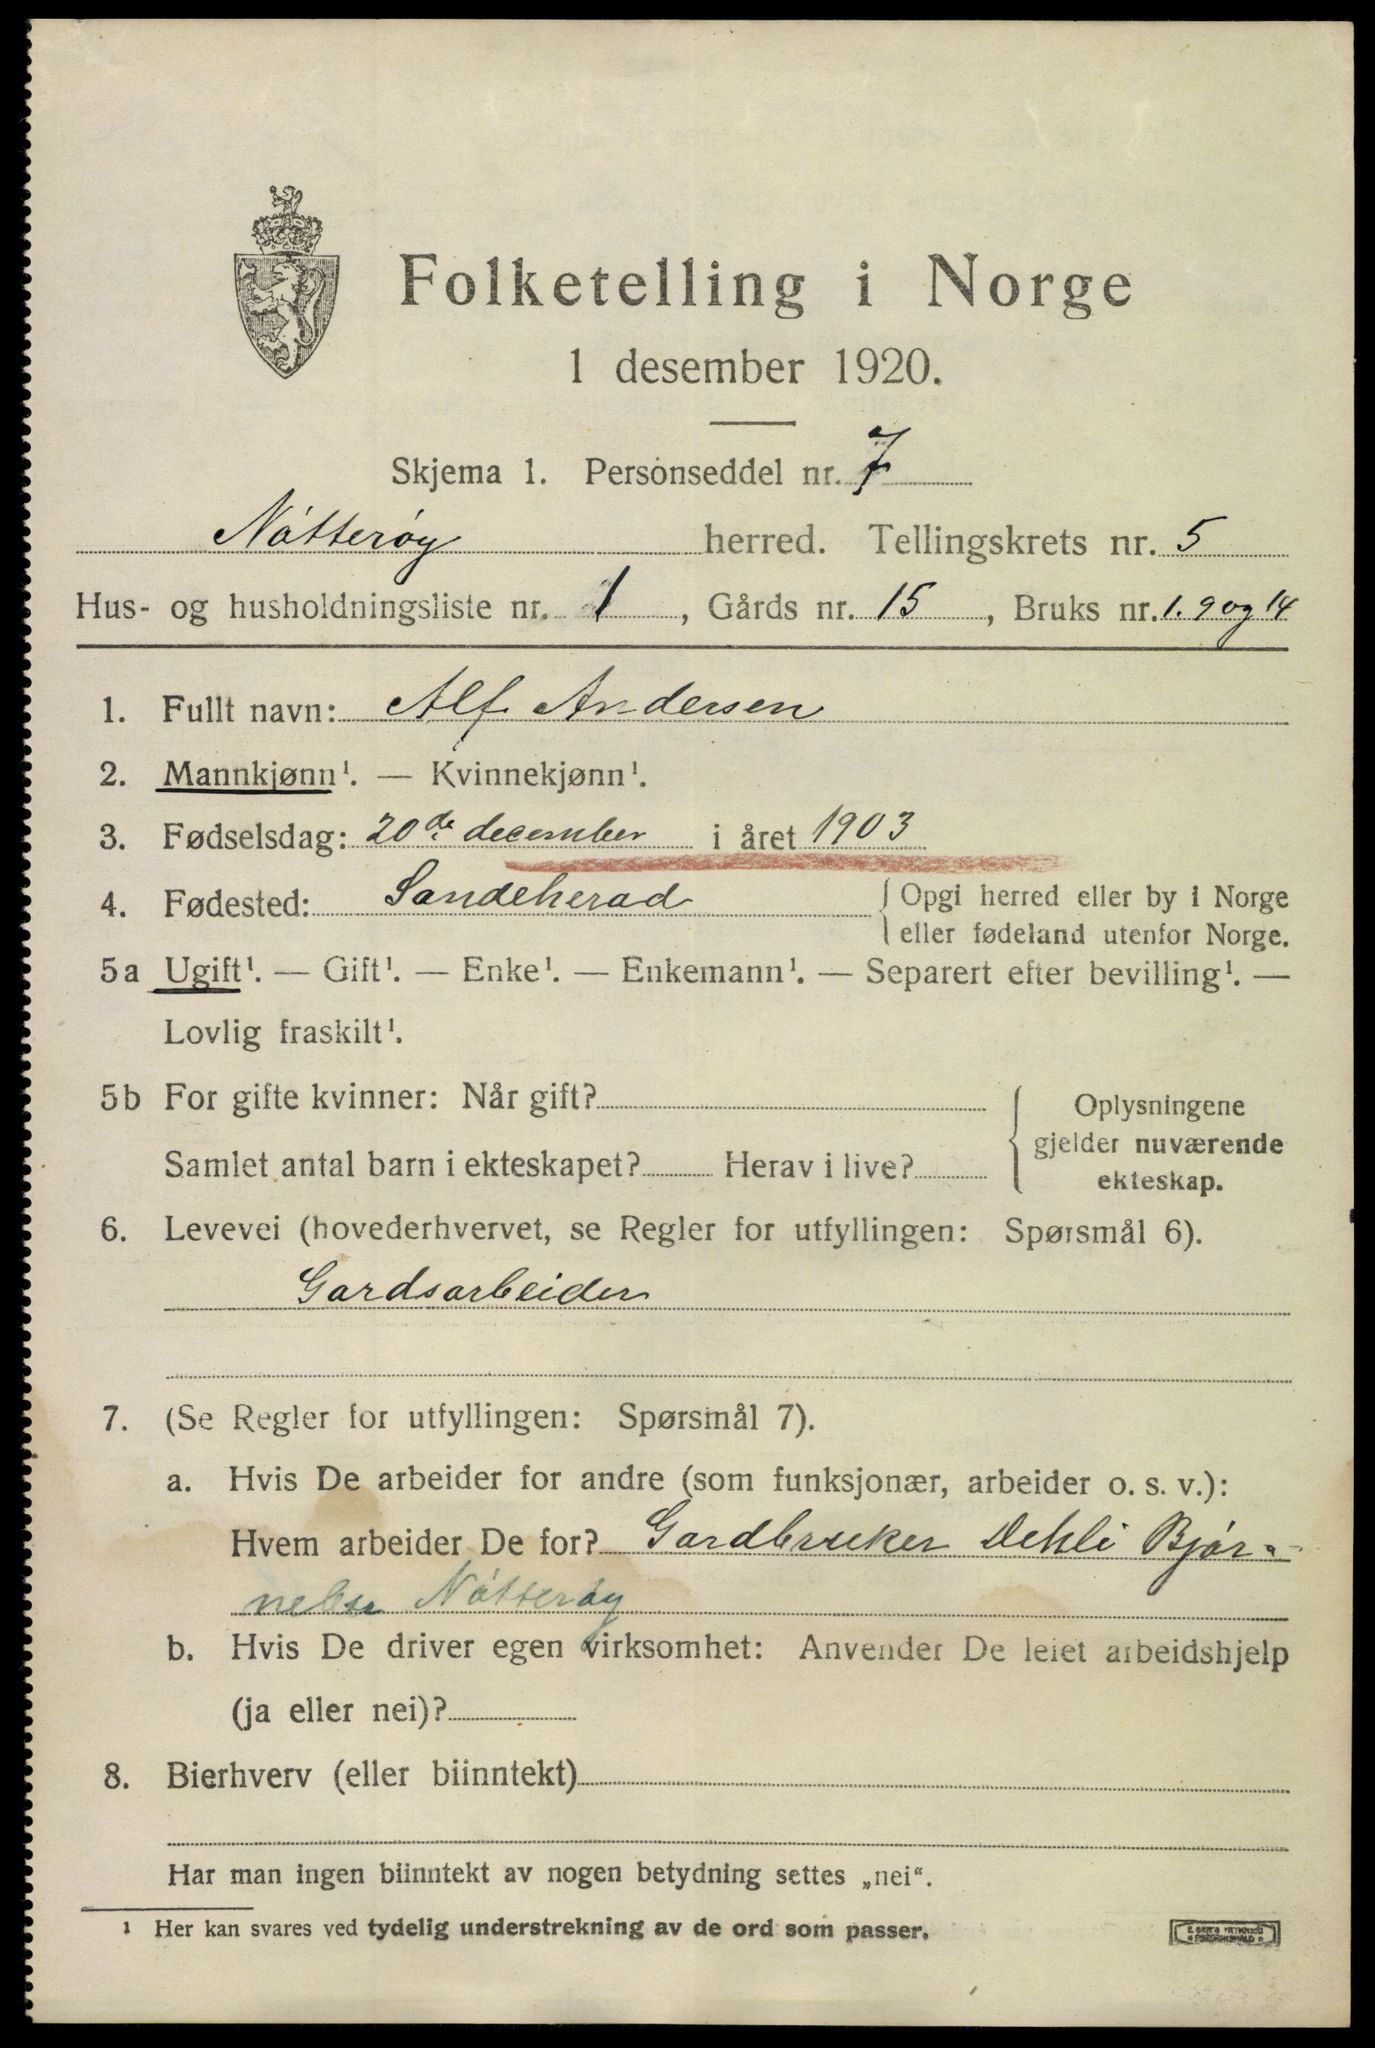 Folketelling i Norge
1 desember 1920.
Skjema 1. Personseddel nr. 7
Nøtterøy herred. Tellingskrets nr. 5
Hus- og husholdningsliste nr. 1, Gårds nr. 15, Bruks nr. 1. 9 og 14
1. Fullt navn: Alf Andersen
2. Mannkjønn¹. — Kvinnekjønn¹.
3. Fødselsdag: 20de december i året 1903
4. Fødested: Sandeherad { Opgi herred eller by i Norge
eller fødeland utenfor Norge.
5a Ugift¹. — Gift¹. — Enke¹. — Enkemann¹. — Separert efter bevilling¹. —
Lovlig fraskilt¹.
5b For gifte kvinner: Når gift? { Oplysningene
gjelder nuværende
Samlet antal barn i ekteskapet? Herav i live?
ekteskap.
6. Levevei (hovederhvervet, se Regler for utfyllingen: Spørsmål 6).
Gardsarbeider
7. (Se Regler for utfyllingen: Spørsmål 7).
a. Hvis De arbeider for andre (som funksjonær, arbeider o. s. v.):
Hvem arbeider De for? Gardbruker Dehli Bjør-
Nøtterøy
b. Hvis De driver egen virksomhet: Anvender De leiet arbeidshjelp
(ja eller nei)?
8. Bierhverv (eller biinntekt)
Har man ingen biinntekt av nogen betydning settes „nei“.
¹ Her kan svares ved tydelig understrekning av de ord som passer.